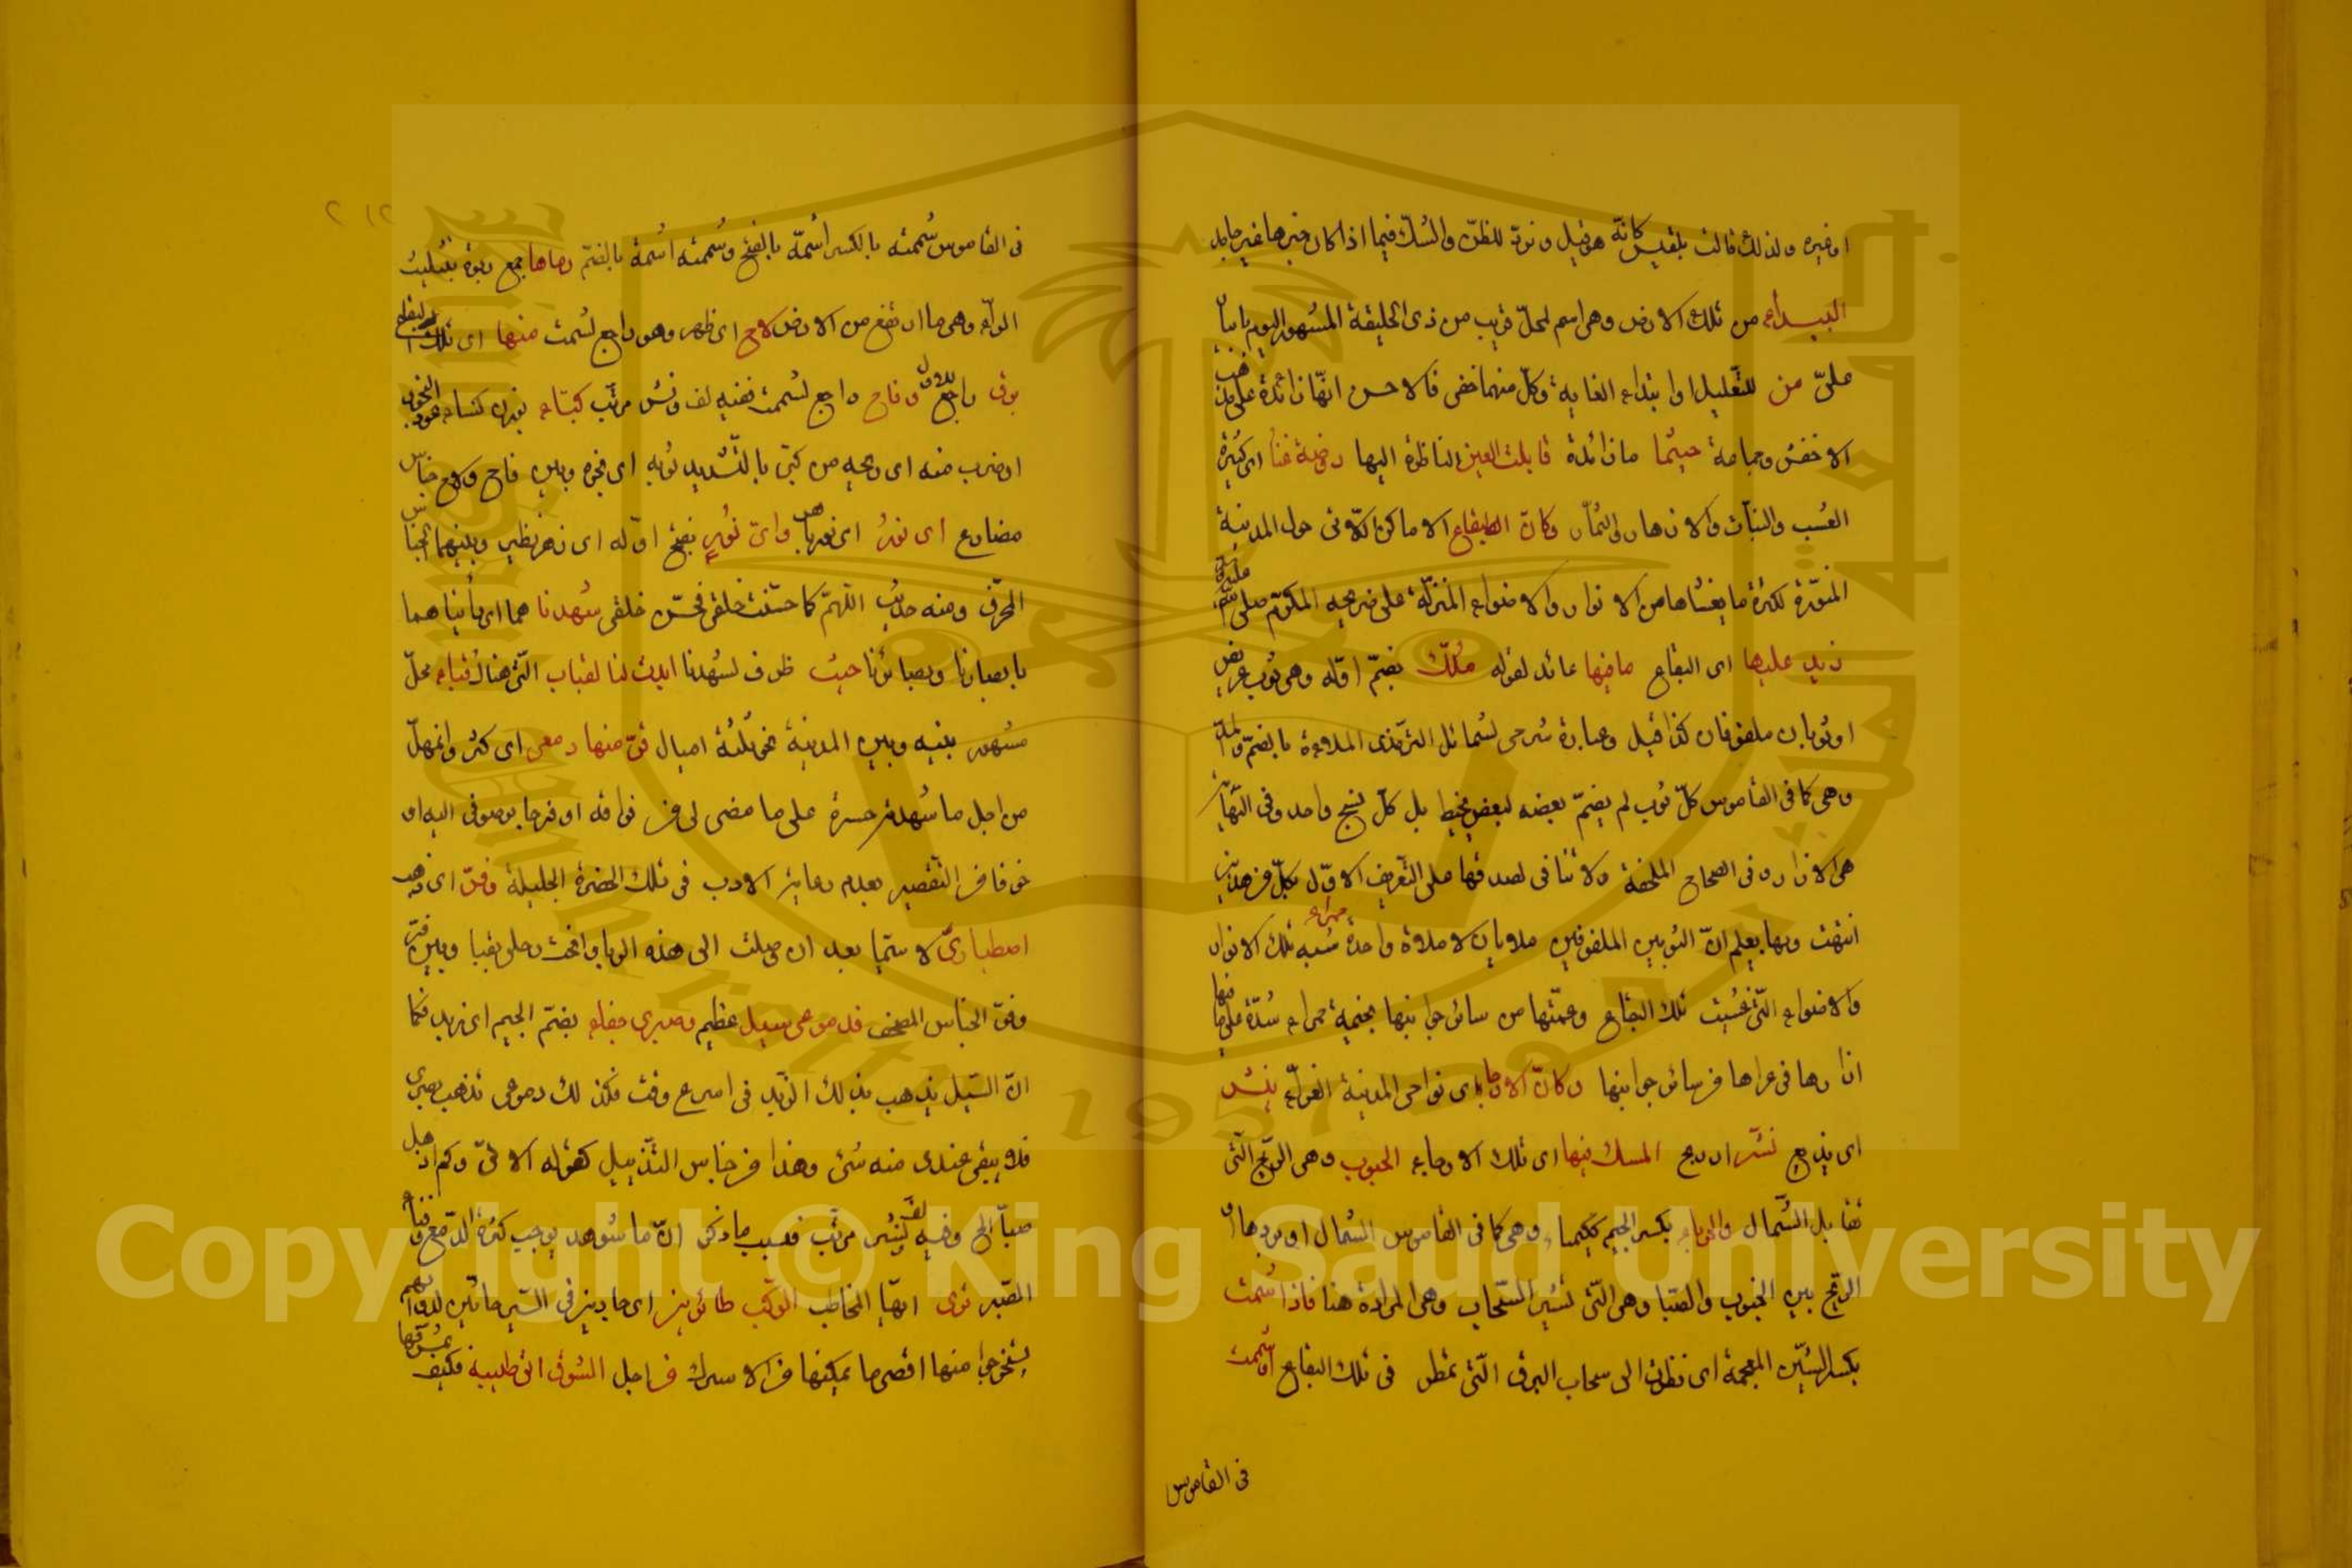 او غيره ولذلك قالت بلقيس كانه هو قيل وترد للظن والشك فيما اذا كان خبرها غير جامد
البيداء من تلك الارض وهى اسم لمحل قريب من ذى الحليفة المشهور اليوم بابيار
على من للتعليل او ابتداء الغاية وكل منهما خفى فالاحسن انها زائدة على مذهب
الاخفش وجماعة حيثما ما زائدة قابلت العين الناظرة اليها روضة غنا اى كثيرة
العشب والنبات والازهار والثمار وكان البقاع الاماكن اللاتى حول المدينة
المنورة لكثرة ما يغشاها من الانوار والاضواء المنزلة على ضريحه المكرم صلى الله عليه
زيد عليها اى البقاع ما فيها عائد لقوله ملك بضم اوله وهى ثوب عريض
او ثوبان ملفوفان كذا قيل وعبارة شرحى لشمائل الترمذى الملاءة بالضم والمد
وهى كما فى القاموس كل ثوب لم يضم بعضه لبعض بخيط بل كل نسج واحد وفى النهاية
هى الازار وفى الصحاح الملحفة ولا تنافى لصدقها على التعريف الاول بكل من هذين
انتهت وبها يعلم ان الثوبين الملفوفين ملاءتان لا ملاءة واحدة حمراء شبه تلك الانوار
والاضواء التى غشيت تلك البقاع وعمتها من سائر جوانبها بخيمة حمراء شدة على ما فيها
ازارها فى عراها من سائر جوانبها وكان الارجاء اى نواحى المدينة الغراء ينشر
اى يذيع نشر اى ريح المسك فيها اى تلك الارجاء الجنوب وهى الريح التى
تقابل الشمال والجرباء بكسر الجيم ككيمياء وهى كما فى القاموس الشمال او بردها او
الريح بين الجنوب والصبا وهى التى تثير السحاب وهى المرادة هنا فاذا شمت
بكسر الشين المعجمة اى نظرت الى سحاب البرق التى تمطر فى تلك البقاع او شممت
فى القاموس
٢١٢
فى القاموس شممته بالكسر اشمه بالفتح وشممته اشمه بالضم رباها جمع ربوة بتثليث
الراء وهى ما ارتفع من الارض لاح اى ظهر وهو راجع لشمت منها اى تلك البقاع
برق راجع للاول وفاح راجع لشممت ففيه لف ونشر مرتب كباء بوزن كساء عود البخور
او ضرب منه اى ريحه من كبى بالتشديد ثوبه اى بخره وبين فاح ولاح جناس
مضارع اى نور اى نورها واى نور بفتح اوله اى زهر نظير وبينهما الجناس
المحرف ومنه حديث اللهم كما حسنت خلقى فحسن خلقى شهدنا هما اى رأيناهما
بابصارنا وبصائرنا حيث ظرف لشهدنا ابدت لنا القباب التى هناك قباء محل
مشهور بينه وبين المدينة نحو ثلثة اميال قر منها دمعى اى كثر وانهل
من اجل ما شهدته حسرة على ما مضى لى من فراقه او فرحا بوصوفى اليه او
خوفا من التقصير بعدم رعاية الادب فى تلك الحضرة الجليلة وفر اى ذهب
اصطبارى لا سيما بعد ان وصلت الى هذه الرباء وانخت رحلى بقبا وبين قر
وفر الجناس المصحف فدموعى سيل عظيم وصبرى جفاء بضم الجيم اى زبد فكما
ان السيل يذهب بذلك الزبد فى اسرع وقت فكذلك دموعى تذهب بصبرى
فلا يبقى عندى منه شئ وهذا من جناس التذييل كقوله الاتى وكم اذهل
صبا الخ وفيه لف ونشر مرتب فسبب ما ذكر ان ما شوهد يوجب كثرة الدمع وفناء
الصبر ترى ايها المخاطب الركب طائرين اى جادين فى السير حاثين لدوابهم
يستخرجوا منها اقصى ما يمكنها من الاسراع من اجل الشوق الى طيبة فكيف بمشرفها